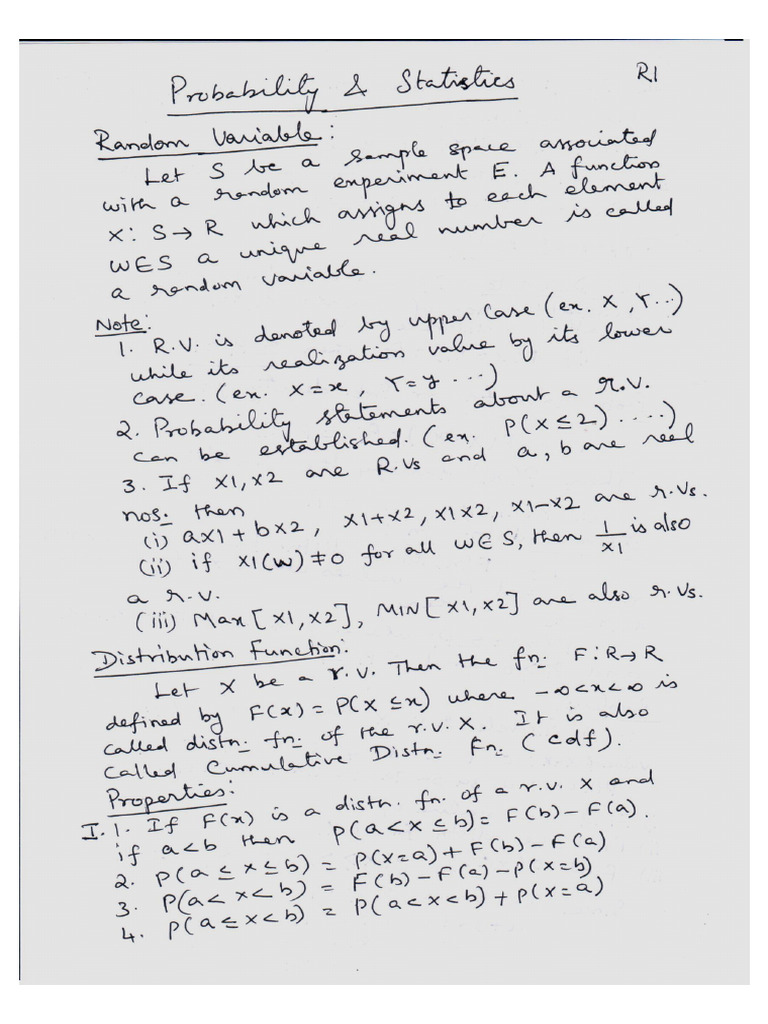 Probability & Statistics R1
Random Variable:
Let S be a sample space associated
with a random experiment E. A function
X: S→R which assigns to each element
W∈S a unique real number is called
a random variable.
Note:
1. R.V. is denoted by upper case (ex. X, Y...)
while its realization value by its lower
case. (ex. X=x, Y=y ...)
2. Probability statements about a r.v.
can be established. (ex. P(X≤2) ....)
3. If X1, X2 are R.Vs and a, b are real
nos: then
(i) aX1+bX2, X1+X2, X1X2, X1-X2 are r.vs.
(ii) if X1(w)≠0 for all W∈S, then 1/X1 is also
a r.v.
(iii) Max[X1,X2], MIN[X1,X2] are also r.vs.
Distribution Function:
Let X be a r.v. Then the fn: F:R→R
defined by F(x)=P(X≤x) where -∞<x<∞ is
called distn: fn: of the r.v. X. It is also
called Cumulative Distn. Fn. (cdf).
Properties:
I. 1. If F(x) is a distn. fn. of a r.v. X and
if a<b then P(a<X≤b)=F(b)-F(a).
2. P(a≤X≤b) = P(X=a)+F(b)-F(a)
3. P(a<X<b) = F(b)-F(a)-P(X=b)
4. P(a≤X<b) = P(a<X<b)+P(X=a)